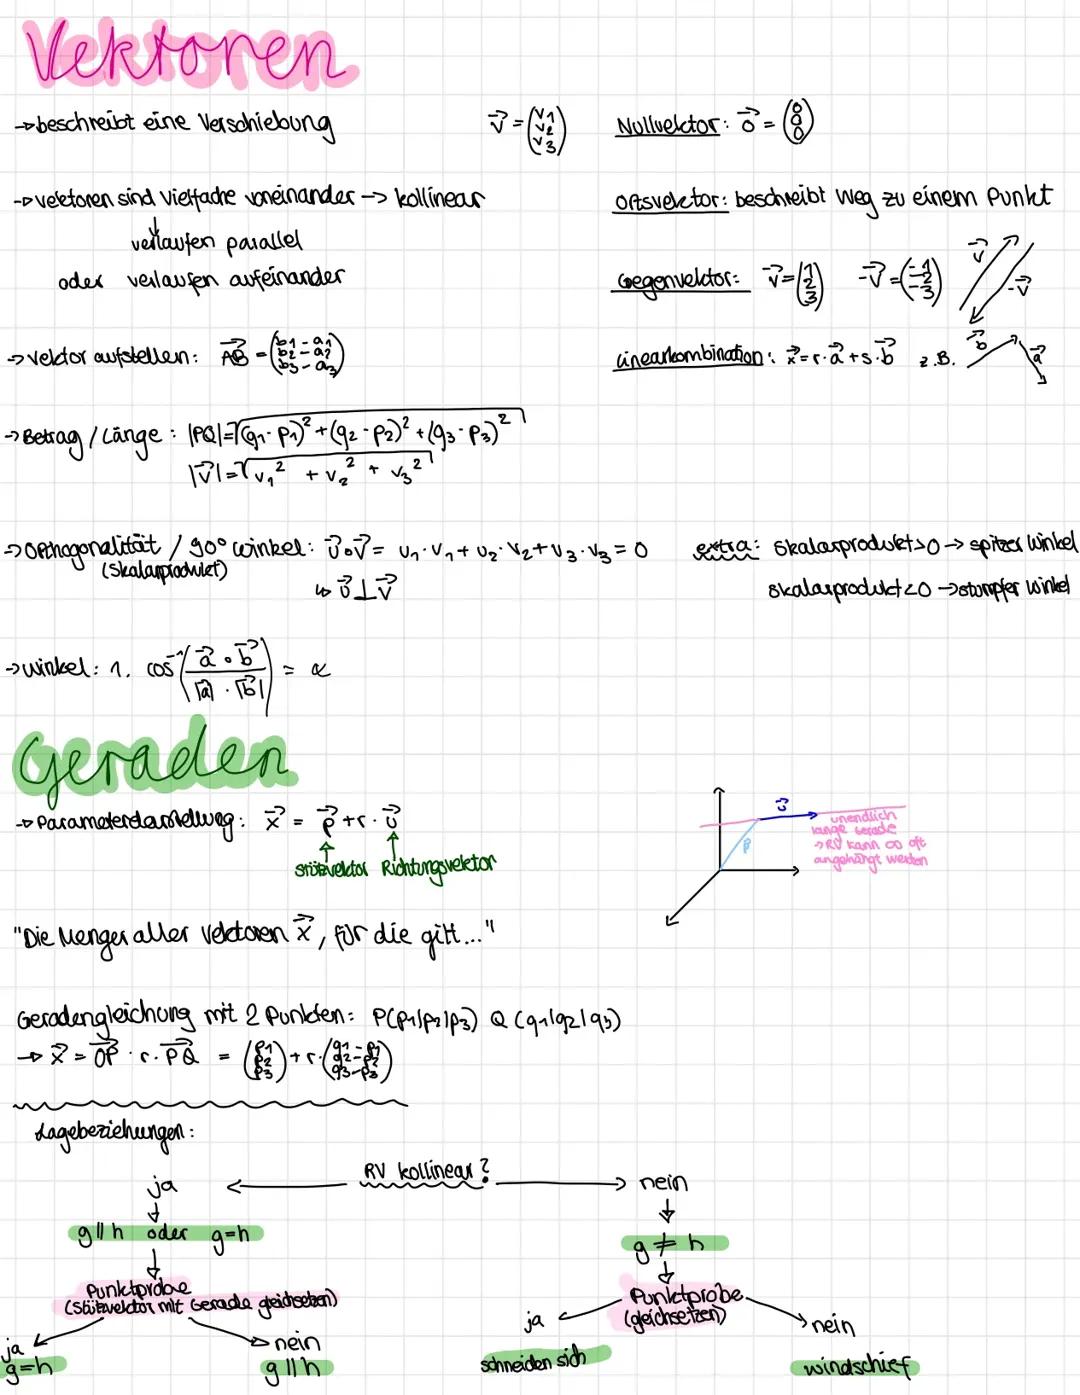 Vektoren
→ beschreibt eine Verschiebung
v⃗ = (v1 v2 v3)
Nullvektor: 0⃗ = (0 0 0)
→ vektoren sind Vielfache voneinander → kollinear
verlaufen parallel
oder verlaufen aufeinander
Ortsvektor: beschreibt Weg zu einem Punkt
Gegenvektor: v⃗ = (1 2 3) -v⃗ = (-1 -2 -3)
v⃗
-v⃗
→ vektor aufstellen: AB⃗ = (b1 - a1 b2 - a2 b3 - a3)
Linearkombination: x⃗ = r · a⃗ + s · b⃗ z.B. b⃗ a⃗
→ Betrag / Länge: |PQ| = √(q1 - p1)² + (q2 - p2)² + (q3 - p3)²
|v⃗| = √v1² + v2² + v3²
→ Orthogonalität / 90° winkel: u⃗ ∘ v⃗ = u1 · v1 + u2 · v2 + u3 · v3 = 0
(Skalarprodukt)
↳ u⃗ ⊥ v⃗
extra: Skalarprodukt > 0 → spitzer Winkel
skalarprodukt < 0 → stumpfer winkel
→ winkel: 1. cos⁻¹ (a⃗ ∘ b⃗ / |a⃗| · |b⃗|) = α
Geraden
→ Parameterdarstellung: x⃗ = p⃗ + r · u⃗
Stützvektor Richtungsvektor
u⃗
p⃗
unendlich
lange Gerade
→ RV kann ∞ oft
angehängt werden
"Die Menger aller vektoren x⃗, für die gilt..."
Geradengleichung mit 2 Punkten: P(p1|p2|p3) Q (q1|q2|q3)
→ x⃗ = OP⃗ · r · PQ⃗ = (p1 p2 p3) + r · (q1 - p1 q2 - p2 q3 - p3)
Lagebeziehungen:
RV kollinear?
ja
nein
g || h oder g = h
g ≠ h
Punktprobe
(Stützvektor mit Gerade gleichsetzen)
Punktprobe
(gleichsetzen)
ja
g = h
nein
g || h
ja
schneiden sich
nein
windschief